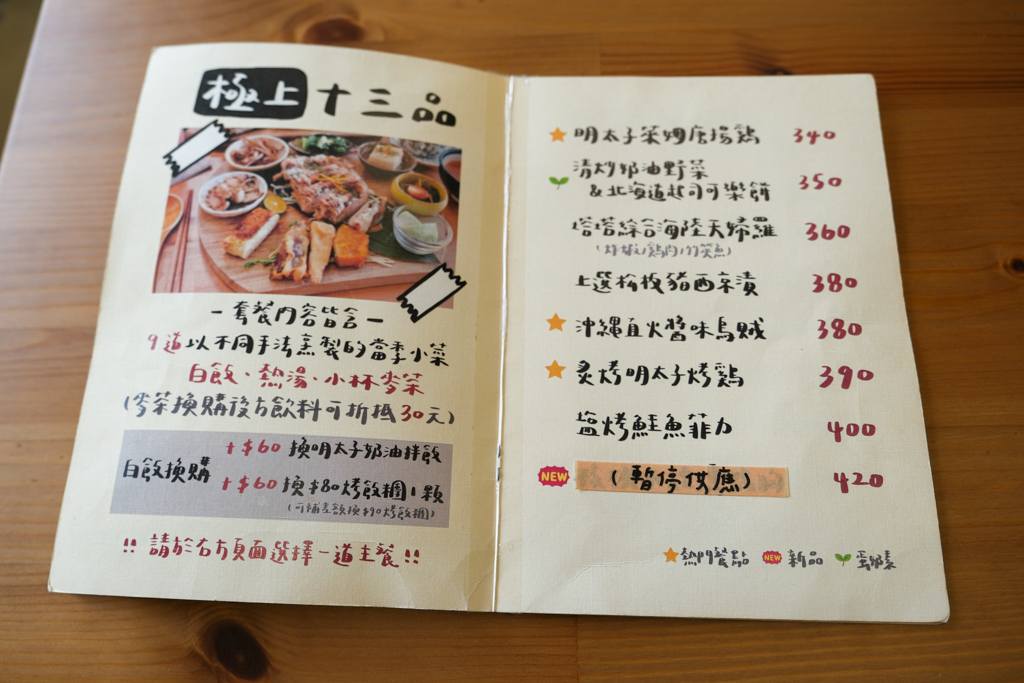 極上十三品
－套餐內容皆含－
9道以不同手法烹製的當季小菜
白飯、熱湯、小杯麥茶
(麥茶換購後方飲料可折抵30元)
白飯換購
+$60 換明太子奶油拌飯
+$60 換$80烤飯糰1顆
(可補差額換$90烤飯糰)
!! 請於右方頁面選擇一道主餐 !!
明太子萊姆唐揚鶏 340
清炒奶油野菜
&北海道起司可樂餅 350
塔塔綜合海陸天婦羅 360
(炸蝦/鶏肉/竹筴魚)
上選松板豬西京漬 380
沖縄直火醬味烏賊 380
炙烤明太子烤鶏 390
塩烤鮭魚菲力 400
NEW (暫停供應) 420
熱門餐點 NEW 新品 蛋奶素